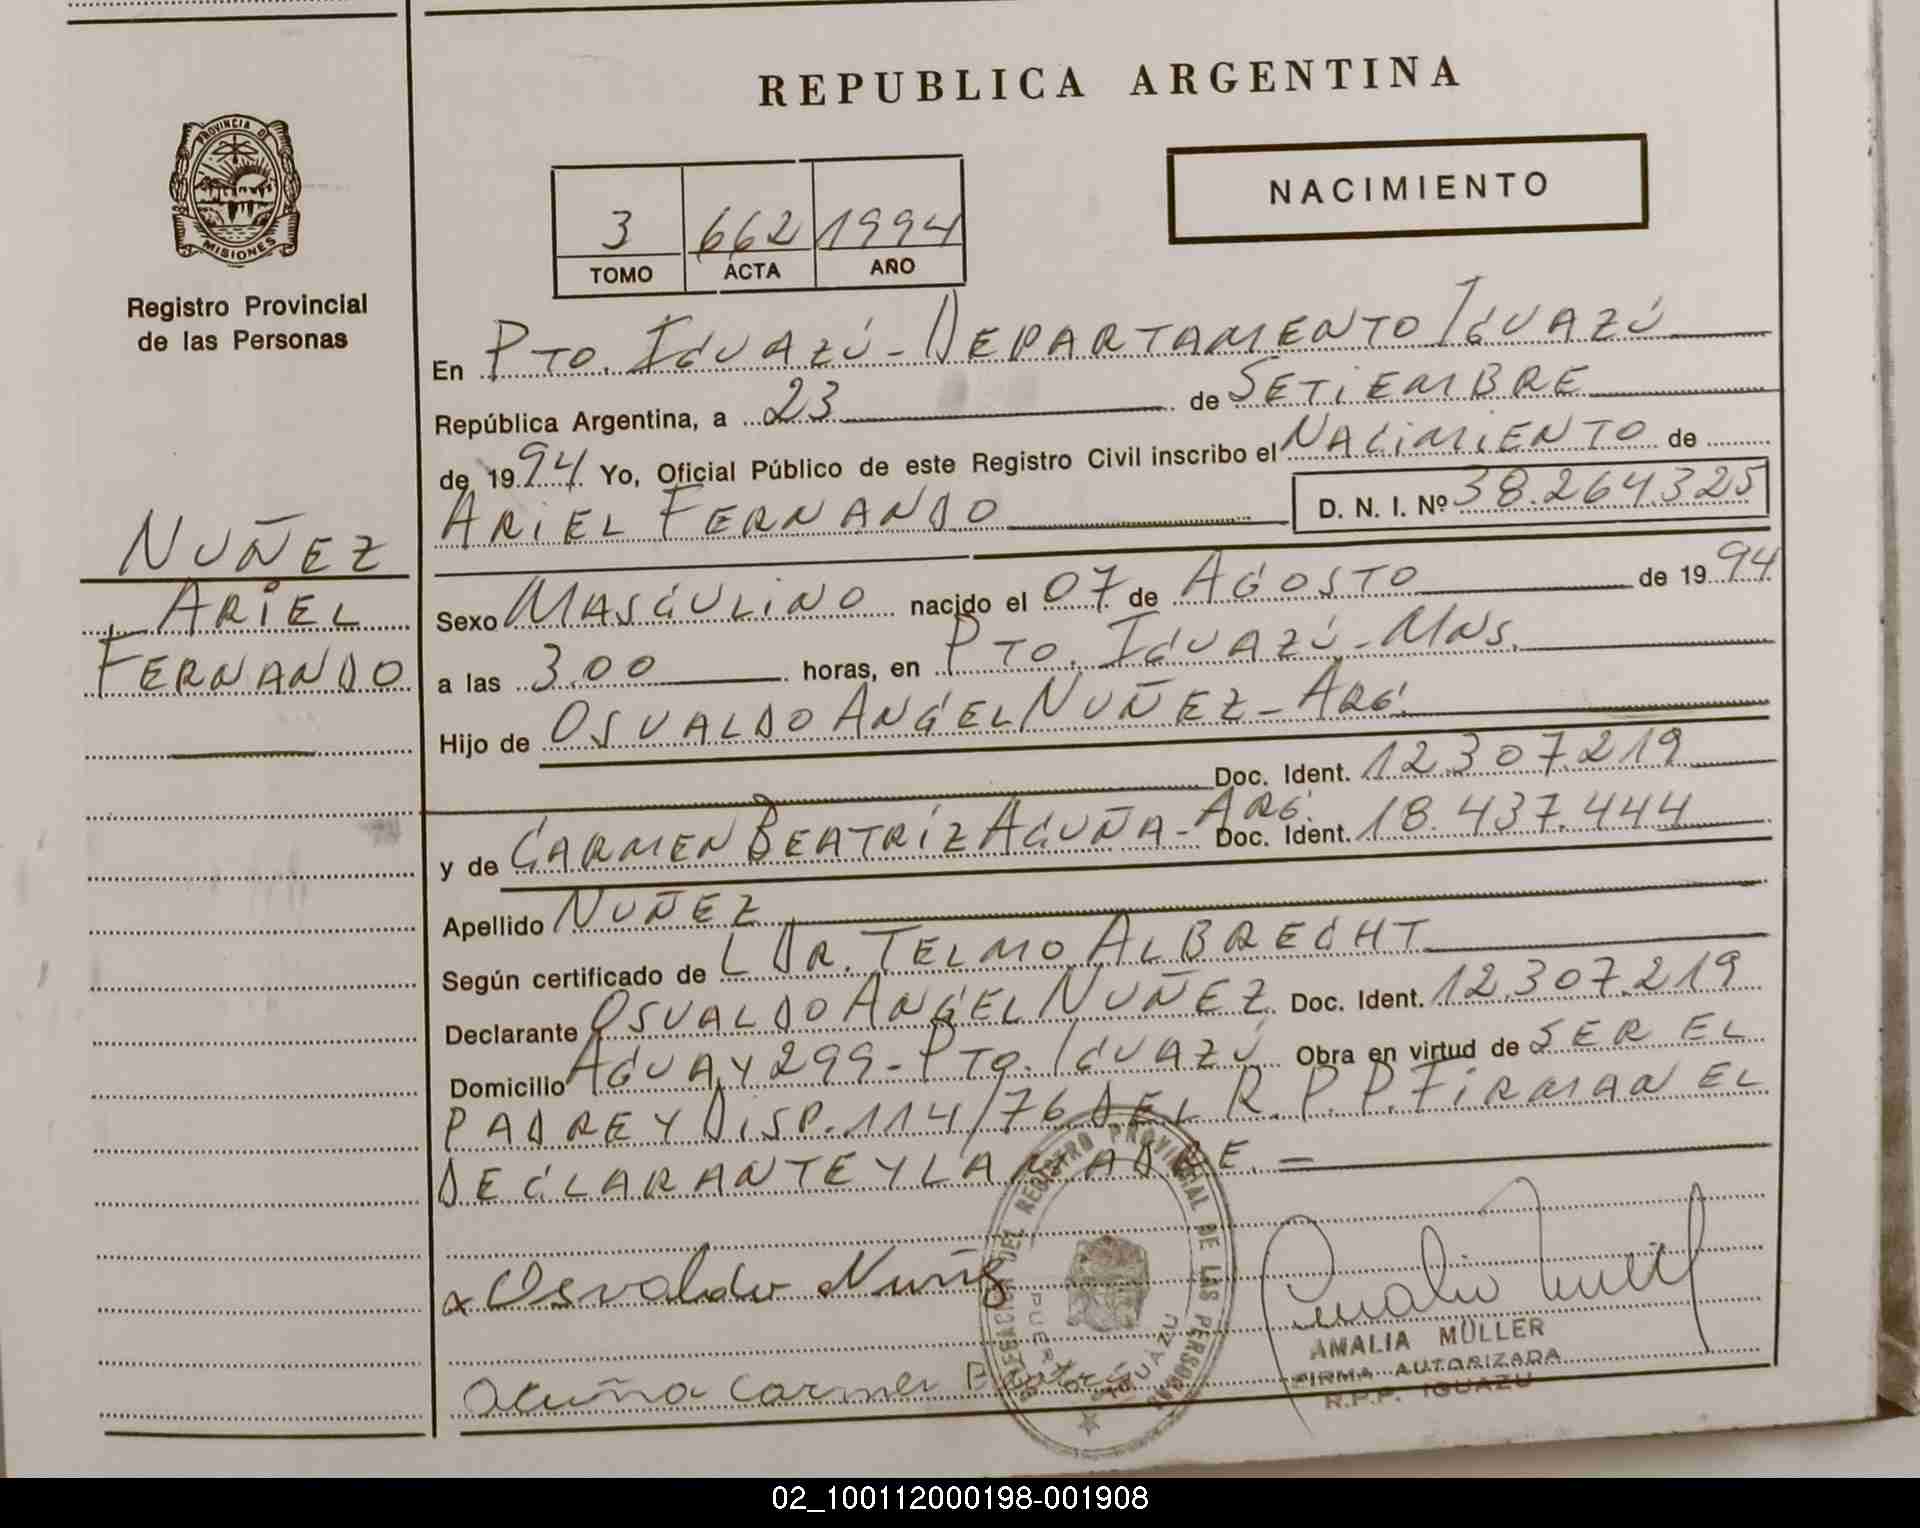 REPUBLICA ARGENTINA
PROVINCIA DE
MISIONES
Registro Provincial
de las Personas
NACIMIENTO
3 662 1994
TOMO ACTA AÑO
En PTO. IGUAZÚ - DEPARTAMENTO IGUAZÚ
República Argentina, a 23 de SETIEMBRE
de 1994 Yo, Oficial Público de este Registro Civil inscribo el NACIMIENTO de
ARIEL FERNANDO D. N. I. Nº 38.264.325
NUÑEZ
ARIEL
FERNANDO
Sexo MASCULINO nacido el 07 de AGOSTO de 1994
a las 3.00 horas, en PTO. IGUAZÚ - MNS.
Hijo de OSVALDO ANGEL NUÑEZ - ARG.
Doc. Ident. 12.307.219
y de CARMEN BEATRÍZ ACUÑA - ARG. Doc. Ident. 18.437.444
Apellido NUÑEZ
Según certificado de L DR. TELMO ALBRECHT
Declarante OSVALDO ANGEL NUÑEZ Doc. Ident. 12.307.219
Domicilio AGUAY 299 - PTO. IGUAZÚ Obra en virtud de SER EL
PADRE Y DISP. 114/76 DEL R. P. P. FIRMAN EL
DECLARANTE Y LA MADRE. -
DEL REGISTRO PROVINCIAL DE LAS PERSONAS
PUERTO IGUAZU
x Osvaldo Nuñez
Acuña Carmen Beatriz
AMALIA MÜLLER
FIRMA AUTORIZADA
R.P.P. IGUAZU
02_100112000198-001908